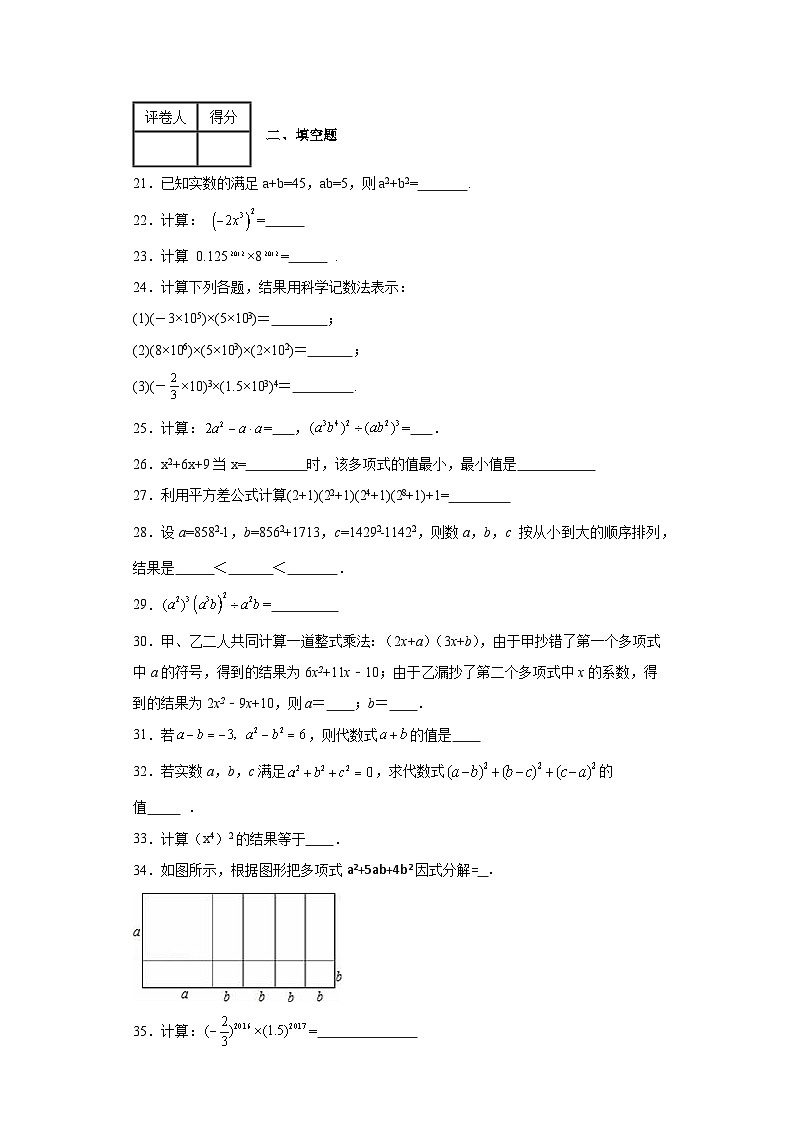 评卷人 得分
二、填空题
21．已知实数的满足 a+b=45，ab=5，则 a²+b²=_______.
22．计算： (−2x³)²=______
23．计算 0.125²⁰¹²×8²⁰¹²=______ .
24．计算下列各题，结果用科学记数法表示：
(1)(－3×10⁵)×(5×10³)＝________；
(2)(8×10⁶)×(5×10³)×(2×10²)＝______；
(3)(－2/3×10)³×(1.5×10³)⁴＝_________.
25．计算：2a²－a·a=___，(a³b⁴)²÷(ab²)³=___．
26．x²+6x+9 当 x=_________时，该多项式的值最小，最小值是___________
27．利用平方差公式计算(2+1)(2²+1)(2⁴+1)(2⁸+1)+1=_________
28．设 a=858²-1，b=856²+1713，c=1429²-1142²，则数 a，b，c 按从小到大的顺序排列，
结果是______＜______＜_______．
29．(a²)³(a³b)²÷a²b=__________
30．甲、乙二人共同计算一道整式乘法：（2x+a）（3x+b），由于甲抄错了第一个多项式
中 a 的符号，得到的结果为 6x²+11x﹣10；由于乙漏抄了第二个多项式中 x 的系数，得
到的结果为 2x²﹣9x+10，则 a＝____；b＝____．
31．若 a−b=−3，a²−b²=6，则代数式 a+b 的值是____
32．若实数 a，b，c 满足 a²+b²+c²=0，求代数式 (a−b)²+(b−c)²+(c−a)² 的
值_____ ．
33．计算（x⁴）² 的结果等于____．
34．如图所示，根据图形把多项式 a²+5ab+4b² 因式分解=_.
a
b
a b b b b
35．计算：(−2/3)²⁰¹⁶×(1.5)²⁰¹⁷=_______________